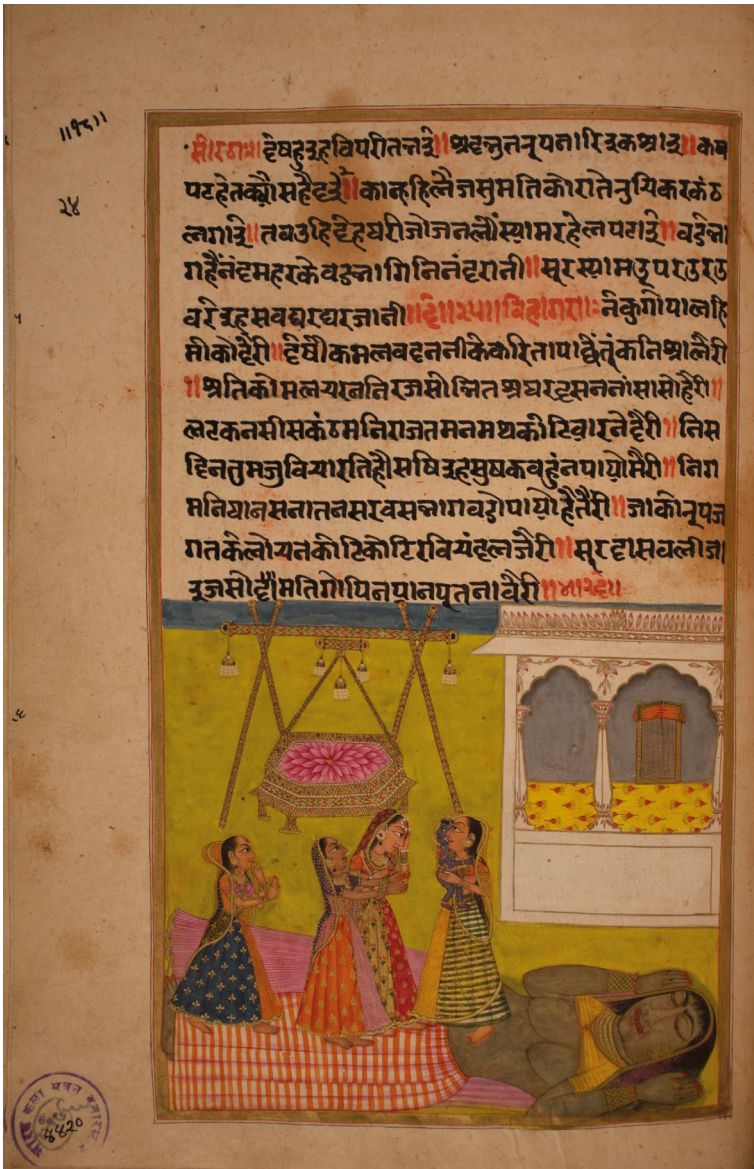 ॥१८॥
२४
सोरठा॥ देषहु इह विपरीत नई॥ अदभुत रूप नारि इक आई॥ कप
पट हेत क्यौ सहै दई॥ कान्हहि लै जसुमति कोरा ते रुचि कर कंठ
लगाई॥ तब उहि देह धरी जोजन लौं स्याम रहे लपटाई॥ बडे भा
ग है नंद महर के बडभागिनि नंदरानी॥ सूर स्याम उपर उर
बरे इह सब घर घर जानी॥ ॥२५॥ विहागरा॥ नेकु गोपालहि
मोको दै री॥ देषौ कमल बदन नीके करि ता पाछैं तूं कनिआ लै री
॥ अति कोमल चर नति रज सोभित अधर दसन नासा सोहै री॥
लटकन सीस कंठ मनि राजत मनमथ कोटि वारने दै री॥ निस
दिन तु मजु विचारति हौ सषि इह सुष कबहुं न पायो मै री॥ निग
मनि धान सनातन सरवस भाग बडे पायो है तै री॥ जाको रूप ज
गत के लोचन कोटि कोटि रवि चंद लजै री॥ सूरदास बली जा
इ जसोदा मति गोपिन प्रान पूतना वैरी॥
५
६
भारत कला भवन बनारस
४४२०